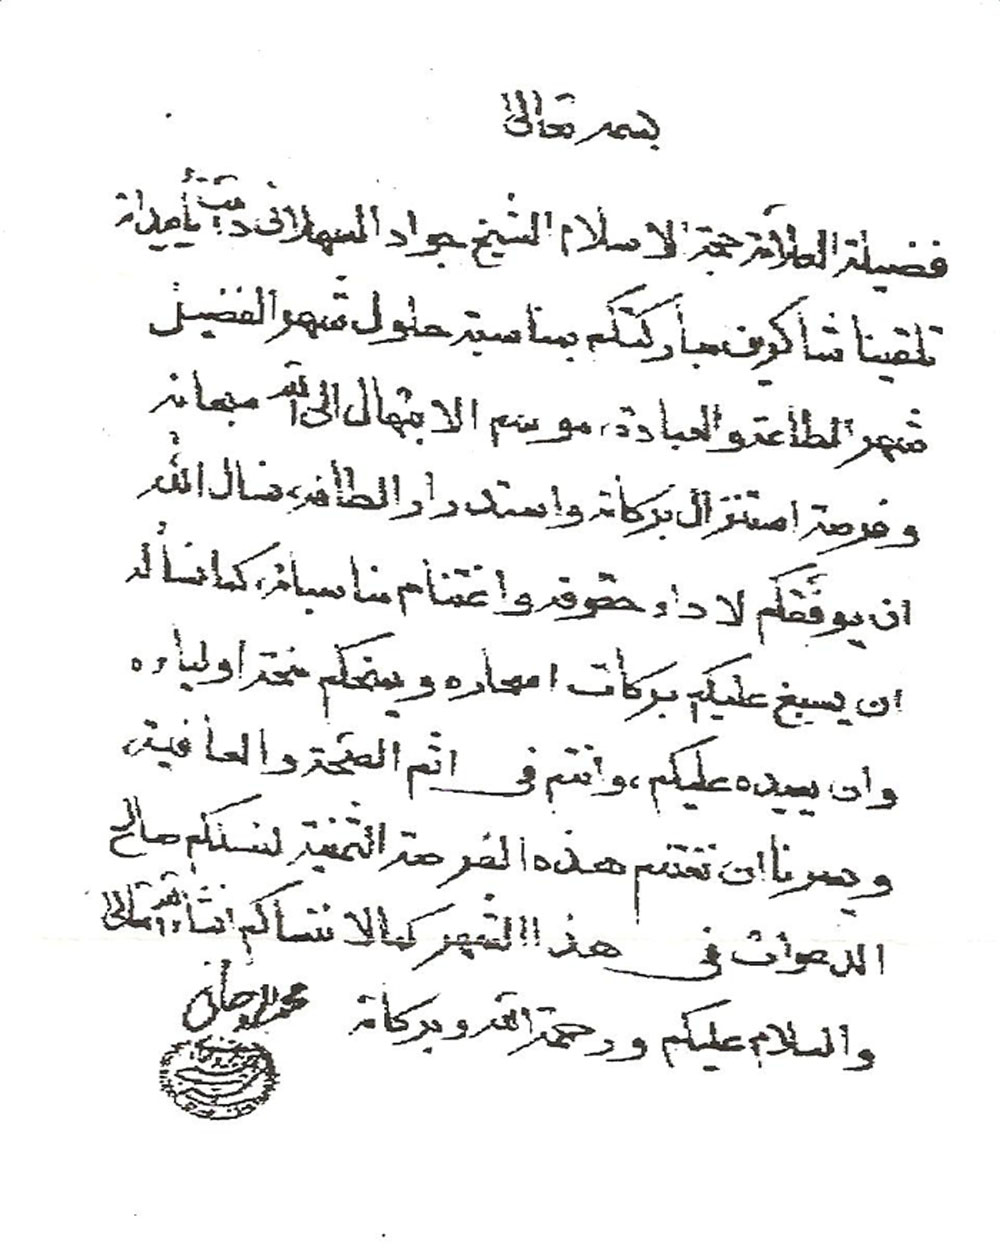 بسمه تعالى
فضيلة العلامة حجة الاسلام الشيخ جواد السهلاني دامت تأييداته
تلقينا شاكرين مباركتكم بمناسبة حلول شهر الفضيل
شهر الطاعة والعبادة، موسم الابتهال الى الله سبحانه
وفرصة استنزال بركاته واستدرار الطافه، نسال الله
ان يوفقكم لاداء حقوقه واغتنام مناسباته، كما نسأله
ان يسبغ عليكم بركات اسحاره ويمنحكم منحة اولياءه
وان يعيده عليكم، وانتم في اتم الصحة والعافية،
ويسرنا ان نغتنم هذه الفرصة الثمينة لنسلكم صالح
الدعوات في هذا الشهر كما لا ننساكم انشاء الله تعالى
والسلام عليكم ورحمة الله وبركاته
محمد الروحاني